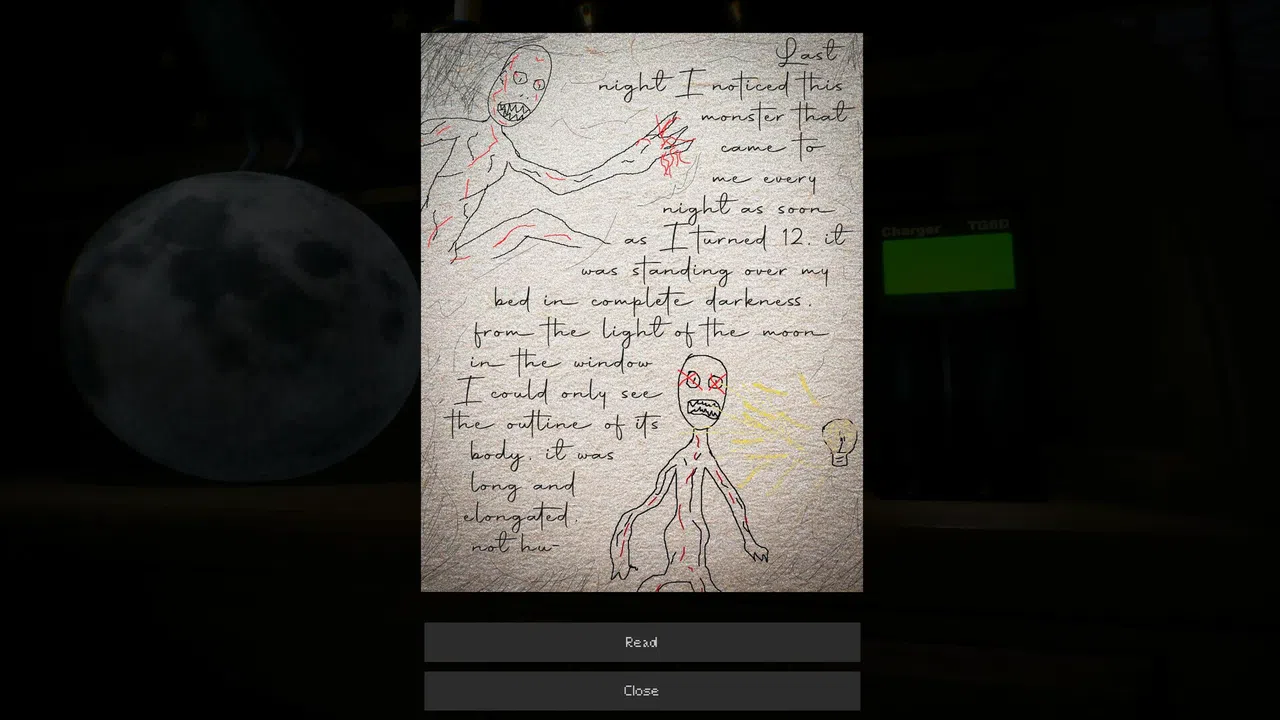 Last
night I noticed this
monster that
came to
me every
night as soon
as I turned 12. it
was standing over my
bed in complete darkness.
from the light of the moon
in the window
I could only see
the outline of its
body. it was
long and
elongated.
not hu-
Charger TG8D
Read
Close